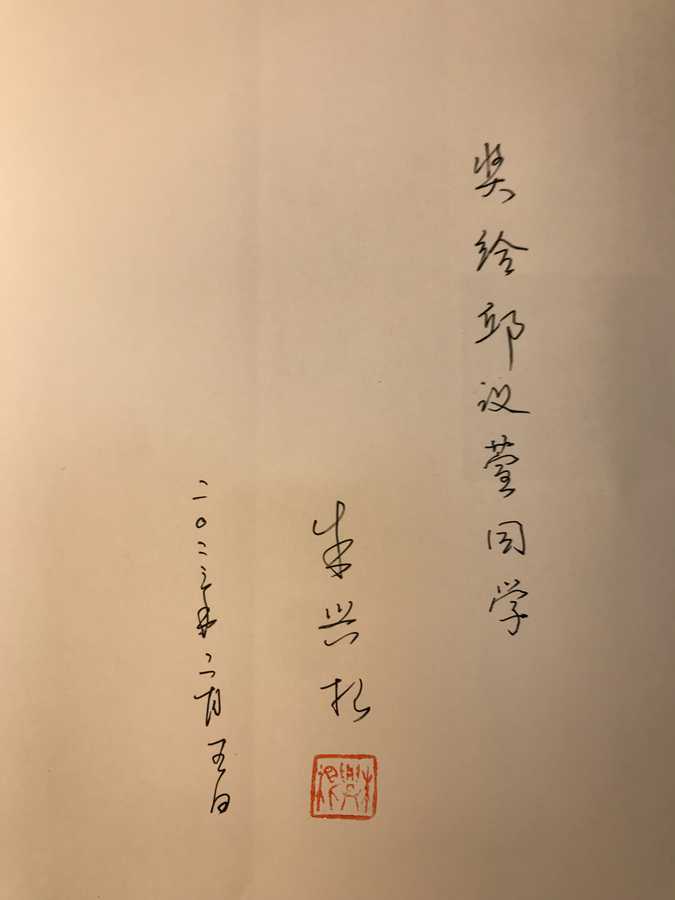 奖给邱议萱同学
朱兴松
二〇二三年二月五日